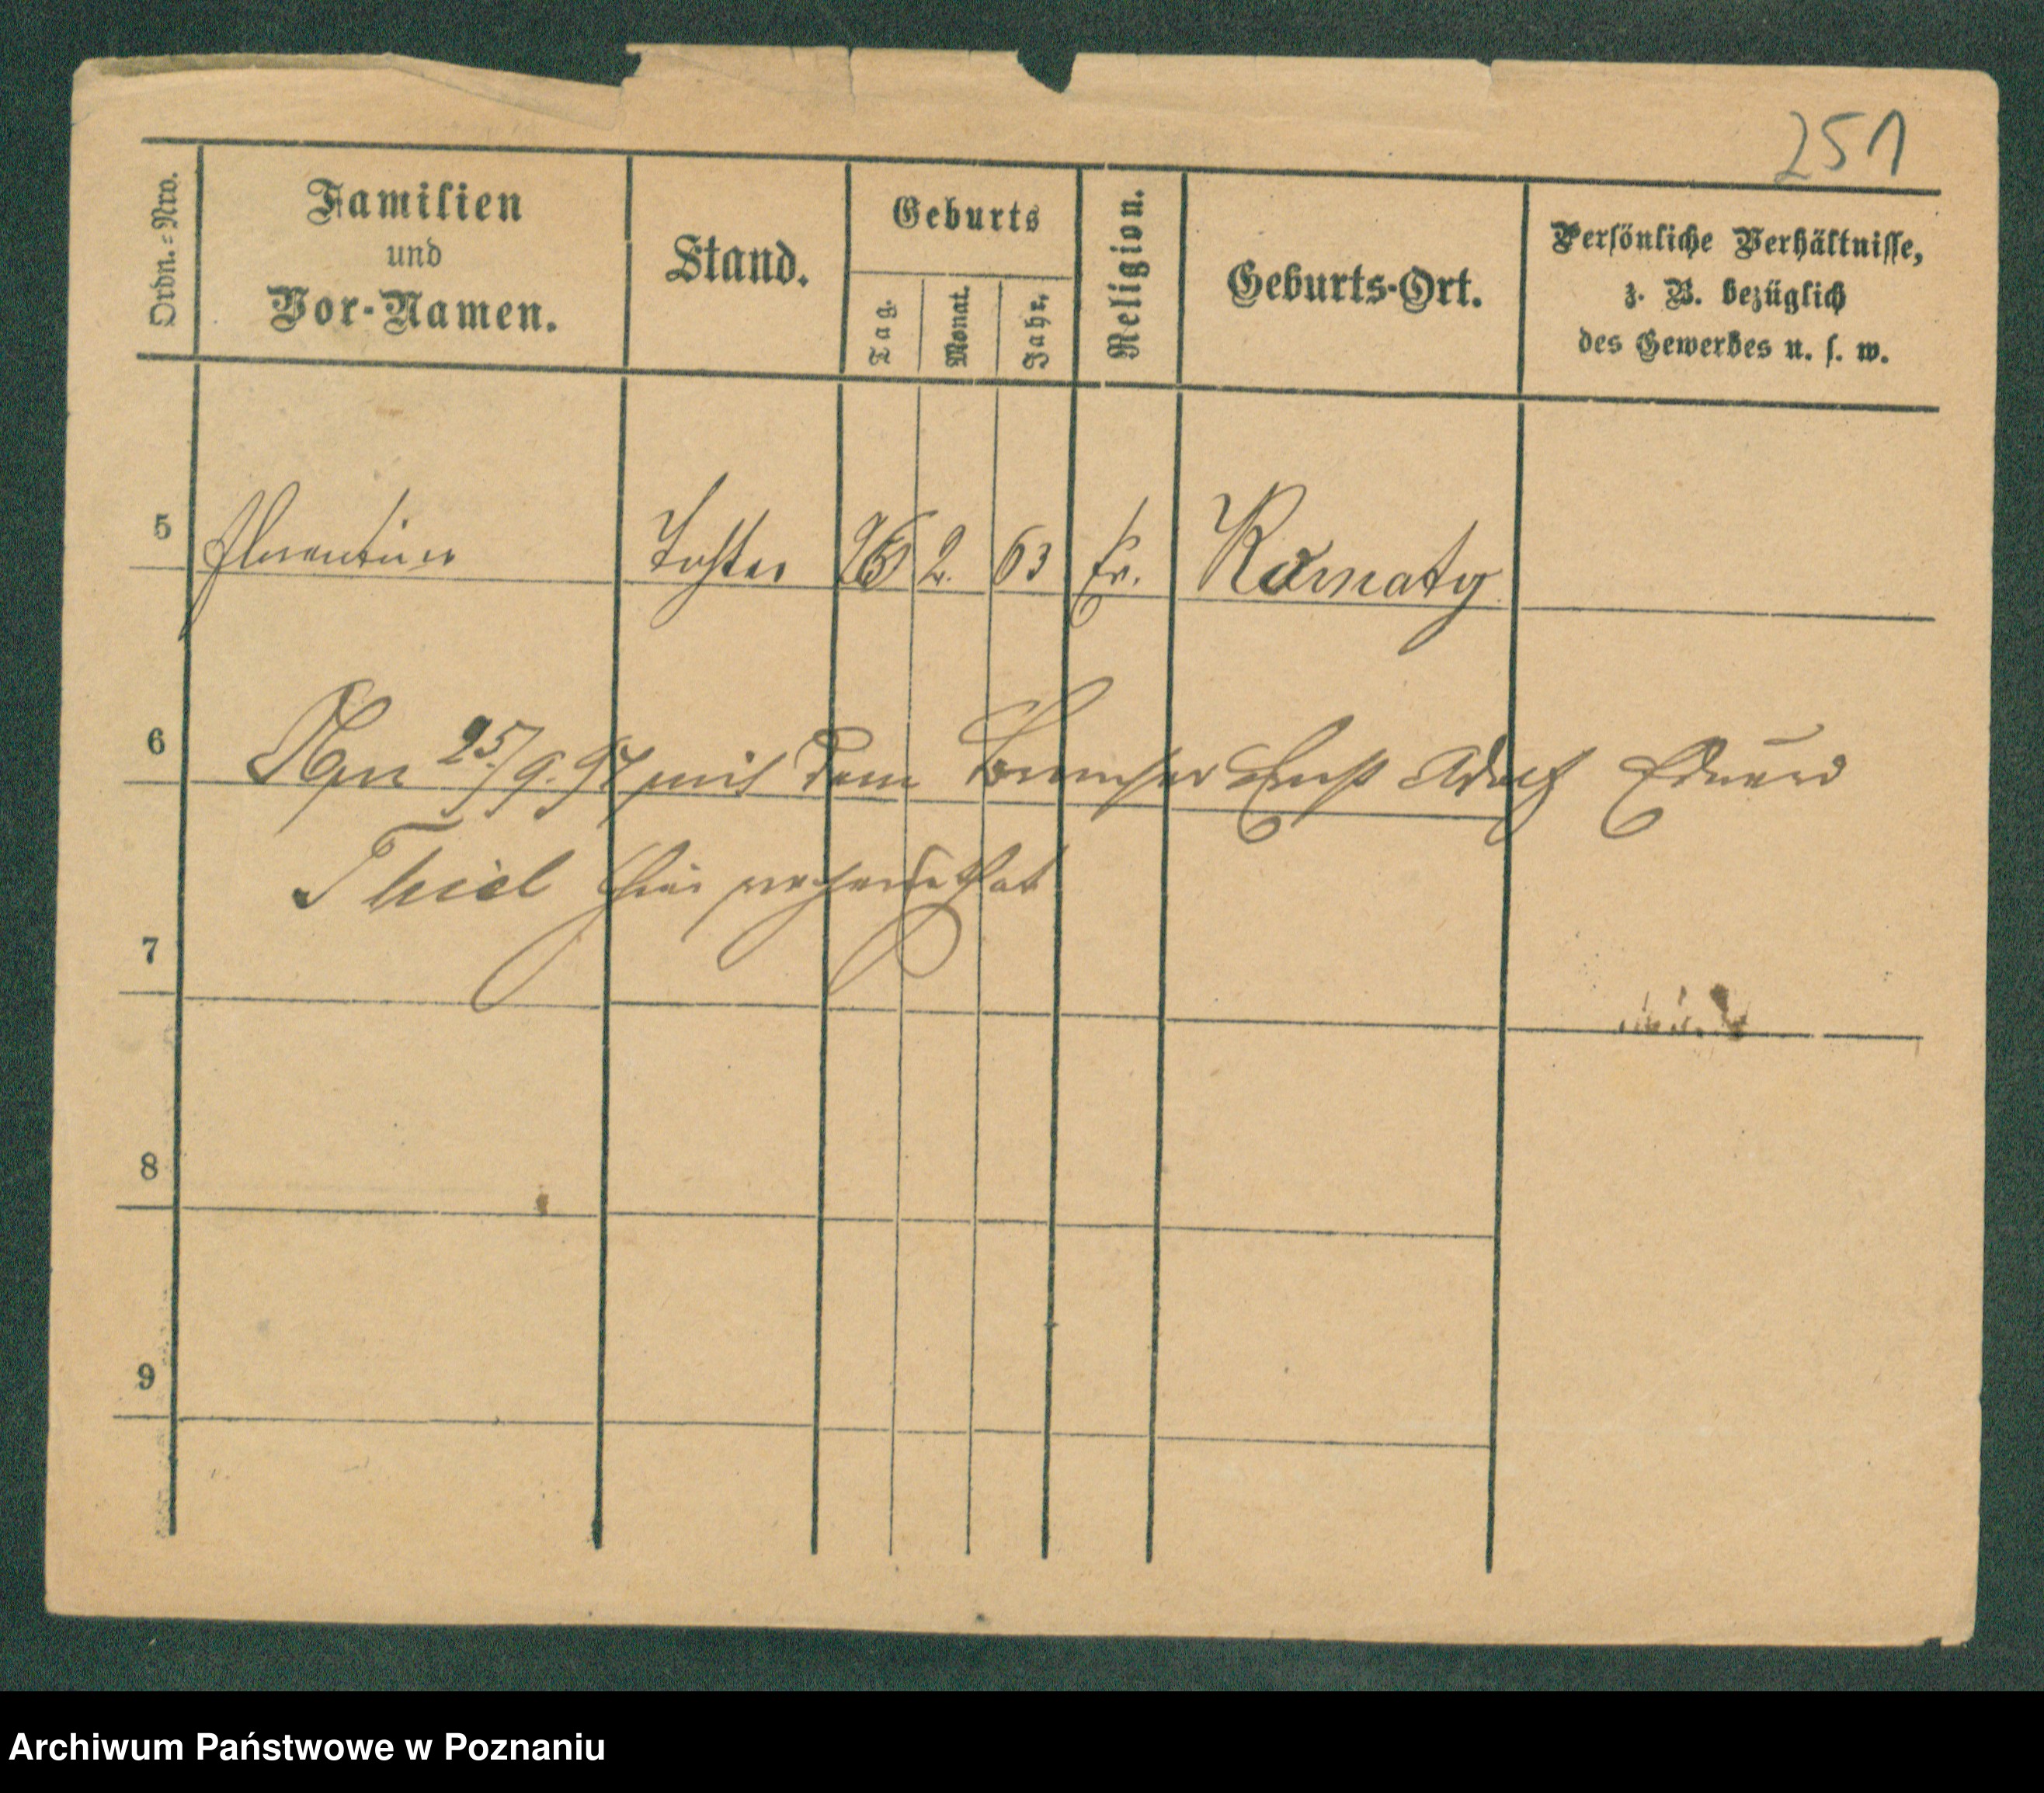 251
Ordn.=Nro.
Familien
und
Vor-Namen.
Stand.
Geburts
Tag.
Monat.
Jahr.
Religion.
Geburts-Ort.
Persönliche Verhältnisse,
z. B. bezüglich
des Gewerbes u. s. w.
5 Florentine Tochter 2. 63 Ev.
6 25/9. 97 mit dem Ernst Adolf Eduard
Thiel hier verheirathet
7
8
9
Archiwum Państwowe w Poznaniu